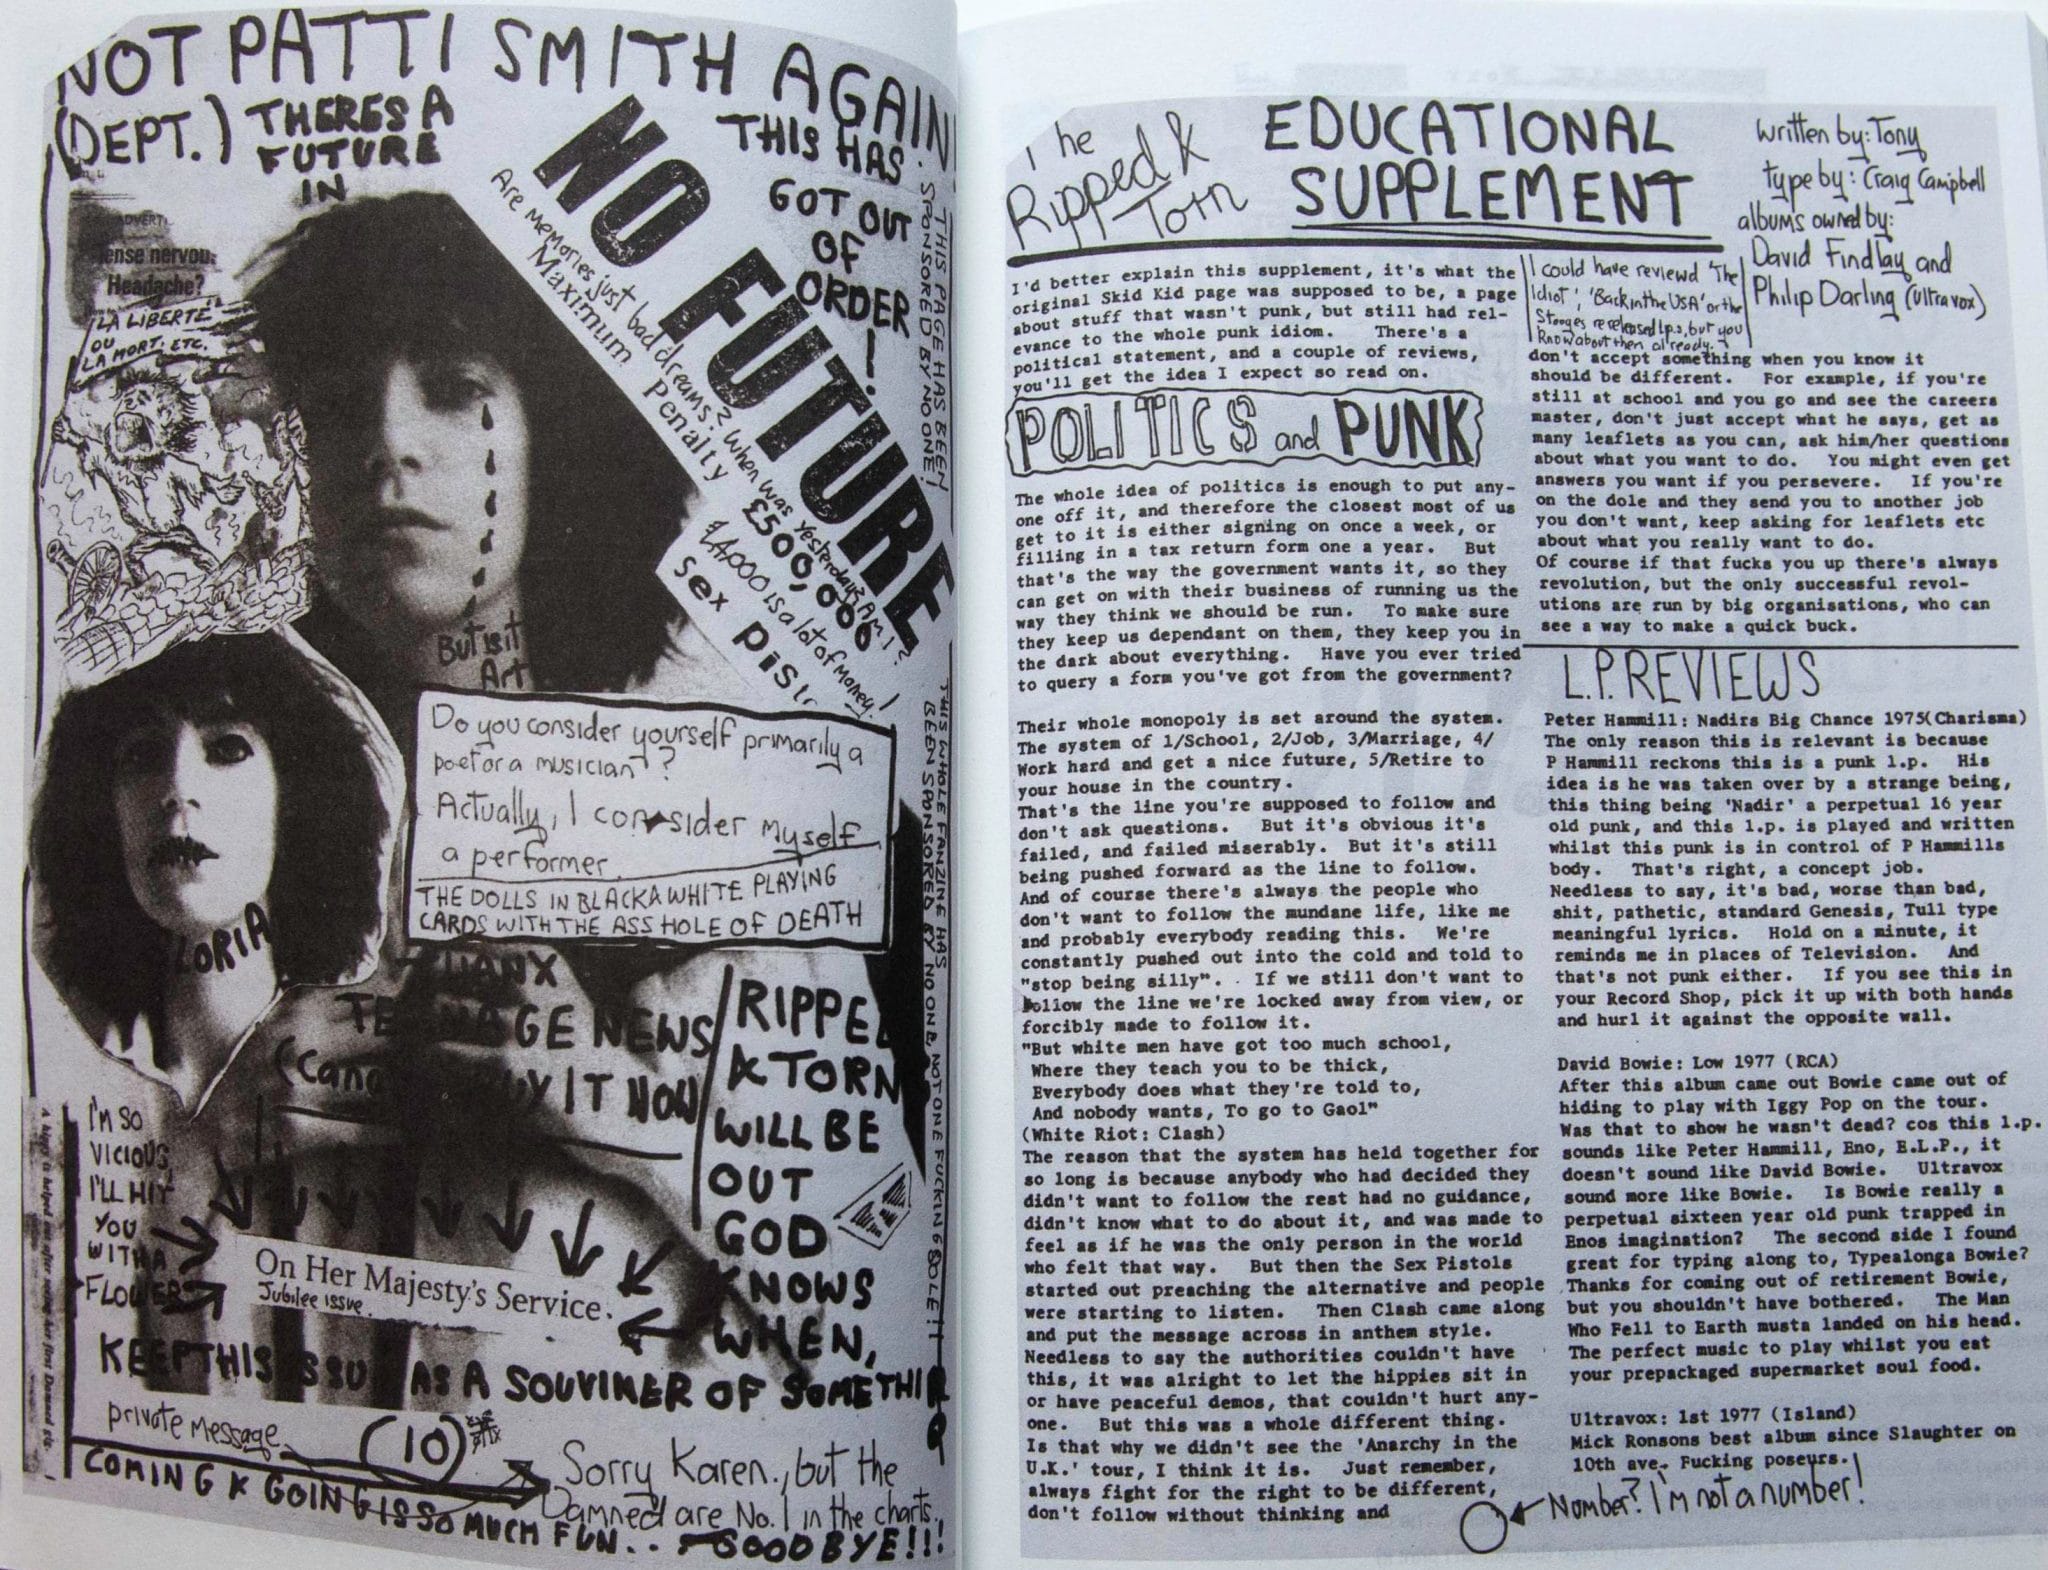 NOT PATTI SMITH AGAIN!
(DEPT.)
THERES A
FUTURE
IN
NO FUTURE
THIS HAS
GOT OUT
OF
ORDER
!
THIS PAGE HAS BEEN
SPONSORED BY NO ONE!
Are memories just bad dreams? When was yesterday? Am I?
Maximum penalty £500,000
£4,000 is a lot of money!
sex pist
ADVERT
ense nervous
Headache?
LA LIBERTÉ
OU
LA MORT. ETC.
But is it
Art
Do you consider yourself primarily a
poet or a musician?
Actually, I consider myself
a performer.
THE DOLLS IN BLACK & WHITE PLAYING
CARDS WITH THE ASSHOLE OF DEATH
THIS WHOLE FANZINE HAS
BEEN SPONSORED BY NO ONE, NOT ONE FUCKIN G OLE!!
LORIA
THANX
TEENAGE NEWS
IT NOW
RIPPED
& TORN
WILL BE
OUT
GOD
KNOWS
WHEN,
I'M SO
VICIOUS,
I'LL HIT
YOU
WITH A
FLOWER
A hippy is helped out after seeing her first Damned
On Her Majesty's Service.
Jubilee issue.
KEEP THIS ISSU AS A SOUVINER OF SOMETHING
private message
(10)
Sorry Karen, but the
Damned are No. 1 in the charts.
COMING & GOING IS SO MUCH FUN.. GOODBYE!!!
The
Ripped &
Torn
EDUCATIONAL
SUPPLEMENT
written by: Tony
type by: Craig Campbell
albums owned by:
David Findlay and
Philip Darling (ultravox)
I'd better explain this supplement, it's what the
original Skid Kid page was supposed to be, a page
about stuff that wasn't punk, but still had rel-
evance to the whole punk idiom. There's a
political statement, and a couple of reviews,
you'll get the idea I expect so read on.
POLITICS and PUNK
The whole idea of politics is enough to put any-
one off it, and therefore the closest most of us
get to it is either signing on once a week, or
filling in a tax return form one a year. But
that's the way the government wants it, so they
can get on with their business of running us the
way they think we should be run. To make sure
they keep us dependant on them, they keep you in
the dark about everything. Have you ever tried
to query a form you've got from the government?
Their whole monopoly is set around the system.
The system of 1/School, 2/Job, 3/Marriage, 4/
Work hard and get a nice future, 5/Retire to
your house in the country.
That's the line you're supposed to follow and
don't ask questions. But it's obvious it's
failed, and failed miserably. But it's still
being pushed forward as the line to follow.
And of course there's always the people who
don't want to follow the mundane life, like me
and probably everybody reading this. We're
constantly pushed out into the cold and told to
"stop being silly". If we still don't want to
follow the line we're locked away from view, or
forcibly made to follow it.
"But white men have got too much school,
Where they teach you to be thick,
Everybody does what they're told to,
And nobody wants, To go to Gaol"
(White Riot: Clash)
The reason that the system has held together for
so long is because anybody who had decided they
didn't want to follow the rest had no guidance,
didn't know what to do about it, and was made to
feel as if he was the only person in the world
who felt that way. But then the Sex Pistols
started out preaching the alternative and people
were starting to listen. Then Clash came along
and put the message across in anthem style.
Needless to say the authorities couldn't have
this, it was alright to let the hippies sit in
or have peaceful demos, that couldn't hurt any-
one. But this was a whole different thing.
Is that why we didn't see the 'Anarchy in the
U.K.' tour, I think it is. Just remember,
always fight for the right to be different,
don't follow without thinking and
I could have reviewd 'The
Idiot', 'Back in the USA' or the
Stooges rereleased l.p.s, but you
know about them already.
don't accept something when you know it
should be different. For example, if you're
still at school and you go and see the careers
master, don't just accept what he says, get as
many leaflets as you can, ask him/her questions
about what you want to do. You might even get
answers you want if you persevere. If you're
on the dole and they send you to another job
you don't want, keep asking for leaflets etc
about what you really want to do.
Of course if that fucks you up there's always
revolution, but the only successful revol-
utions are run by big organisations, who can
see a way to make a quick buck.
L.P. REVIEWS
Peter Hammill: Nadirs Big Chance 1975(Charisma)
The only reason this is relevant is because
P Hammill reckons this is a punk l.p. His
idea is he was taken over by a strange being,
this thing being 'Nadir' a perpetual 16 year
old punk, and this l.p. is played and written
whilst this punk is in control of P Hammills
body. That's right, a concept job.
Needless to say, it's bad, worse than bad,
shit, pathetic, standard Genesis, Tull type
meaningful lyrics. Hold on a minute, it
reminds me in places of Television. And
that's not punk either. If you see this in
your Record Shop, pick it up with both hands
and hurl it against the opposite wall.
David Bowie: Low 1977 (RCA)
After this album came out Bowie came out of
hiding to play with Iggy Pop on the tour.
Was that to show he wasn't dead? cos this l.p.
sounds like Peter Hammill, Eno, E.L.P., it
doesn't sound like David Bowie. Ultravox
sound more like Bowie. Is Bowie really a
perpetual sixteen year old punk trapped in
Enos imagination? The second side I found
great for typing along to, Typealonga Bowie?
Thanks for coming out of retirement Bowie,
but you shouldn't have bothered. The Man
Who Fell to Earth musta landed on his head.
The perfect music to play whilst you eat
your prepackaged supermarket soul food.
Ultravox: 1st 1977 (Island)
Mick Ronsons best album since Slaughter on
10th ave. Fucking poseurs.
Number? I'm not a number!